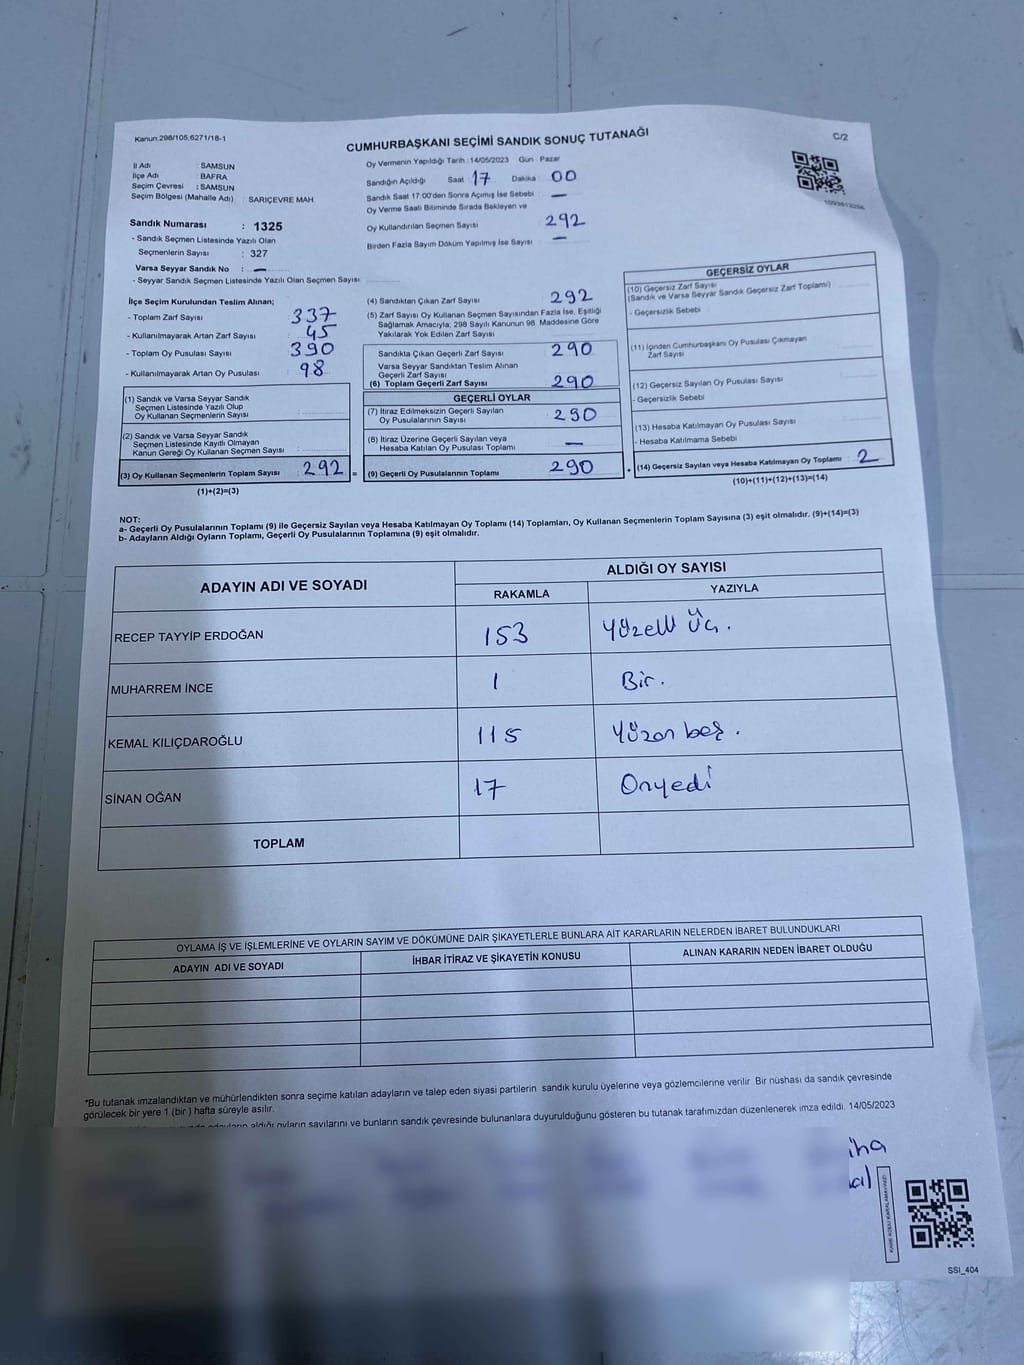 Kanun:298/105,6271/18-1
CUMHURBAŞKANI SEÇİMİ SANDIK SONUÇ TUTANAĞI
C/2
İl Adı : SAMSUN
İlçe Adı : BAFRA
Seçim Çevresi : SAMSUN
Seçim Bölgesi (Mahalle Adı) SARIÇEVRE MAH.
Oy Vermenin Yapıldığı Tarih :14/05/2023 Gün : Pazar
Sandığın Açıldığı Saat 17 Dakika 00
Sandık Saat 17:00'den Sonra Açımış İse Sebebi —
Oy Verme Saati Bitiminde Sırada Bekleyen ve
Oy Kullandırılan Seçmen Sayısı 292
Birden Fazla Sayım Döküm Yapılmış İse Sayısı —
Sandık Numarası : 1325
- Sandık Seçmen Listesinde Yazılı Olan
Seçmenlerin Sayısı : 327
Varsa Seyyar Sandık No : —
- Seyyar Sandık Seçmen Listesinde Yazılı Olan Seçmen Sayısı
İlçe Seçim Kurulundan Teslim Alınan;
- Toplam Zarf Sayısı 337
- Kullanılmayarak Artan Zarf Sayısı 45
- Toplam Oy Pusulası Sayısı 390
- Kullanılmayarak Artan Oy Pusulası 98
(1) Sandık ve Varsa Seyyar Sandık
Seçmen Listesinde Yazılı Olup
Oy Kullanan Seçmenlerin Sayısı
(2) Sandık ve Varsa Seyyar Sandık
Seçmen Listesinde Kayıtlı Olmayan
Kanun Gereği Oy Kullanan Seçmen Sayısı
(3) Oy Kullanan Seçmenlerin Toplam Sayısı 292 =
(1)+(2)=(3)
(4) Sandıktan Çıkan Zarf Sayısı 292
(5) Zarf Sayısı Oy Kullanan Seçmen Sayısından Fazla İse, Eşitliği
Sağlamak Amacıyla, 298 Sayılı Kanunun 98. Maddesine Göre
Yakılarak Yok Edilen Zarf Sayısı
Sandıkta Çıkan Geçerli Zarf Sayısı 290
Varsa Seyyar Sandıktan Teslim Alınan
Geçerli Zarf Sayısı
(6) Toplam Geçerli Zarf Sayısı 290
GEÇERLİ OYLAR
(7) İtiraz Edilmeksizin Geçerli Sayılan
Oy Pusulalarının Sayısı 290
(8) İtiraz Üzerine Geçerli Sayılan veya
Hesaba Katılan Oy Pusulası Toplamı —
(9) Geçerli Oy Pusulalarının Toplamı 290 +
GEÇERSİZ OYLAR
(10) Geçersiz Zarf Sayısı
(Sandık ve Varsa Seyyar Sandık Geçersiz Zarf Toplamı)
- Geçersizlik Sebebi
(11) İçinden Cumhurbaşkanı Oy Pusulası Çıkmayan
Zarf Sayısı
(12) Geçersiz Sayılan Oy Pusulası Sayısı
- Geçersizlik Sebebi
(13) Hesaba Katılmayan Oy Pusulası Sayısı
- Hesaba Katılmama Sebebi
(14) Geçersiz Sayılan veya Hesaba Katılmayan Oy Toplamı 2
(10)+(11)+(12)+(13)=(14)
NOT:
a- Geçerli Oy Pusulalarının Toplamı (9) ile Geçersiz Sayılan veya Hesaba Katılmayan Oy Toplamı (14) Toplamları, Oy Kullanan Seçmenlerin Toplam Sayısına (3) eşit olmalıdır. (9)+(14)=(3)
b- Adayların Aldığı Oyların Toplamı, Geçerli Oy Pusulalarının Toplamına (9) eşit olmalıdır.
ADAYIN ADI VE SOYADI
ALDIĞI OY SAYISI
RAKAMLA YAZIYLA
RECEP TAYYİP ERDOĞAN 153 Yüzelli Üç.
MUHARREM İNCE 1 Bir.
KEMAL KILIÇDAROĞLU 115 Yüzon beş.
SİNAN OĞAN 17 Onyedi
TOPLAM
OYLAMA İŞ VE İŞLEMLERİNE VE OYLARIN SAYIM VE DÖKÜMÜNE DAİR ŞİKAYETLERLE BUNLARA AİT KARARLARIN NELERDEN İBARET BULUNDUKLARI
ADAYIN ADI VE SOYADI İHBAR İTİRAZ VE ŞİKAYETİN KONUSU ALINAN KARARIN NEDEN İBARET OLDUĞU
*Bu tutanak imzalandıktan ve mühürlendikten sonra seçime katılan adayların ve talep eden siyasi partilerin sandık kurulu üyelerine veya gözlemcilerine verilir. Bir nüshası da sandık çevresinde
görülecek bir yere 1 (bir ) hafta süreyle asılır.
adayların aldığı oyların sayılarını ve bunların sandık çevresinde bulunanlara duyurulduğunu gösteren bu tutanak tarafımızdan düzenlenerek imza edildi. 14/05/2023
SSI_404